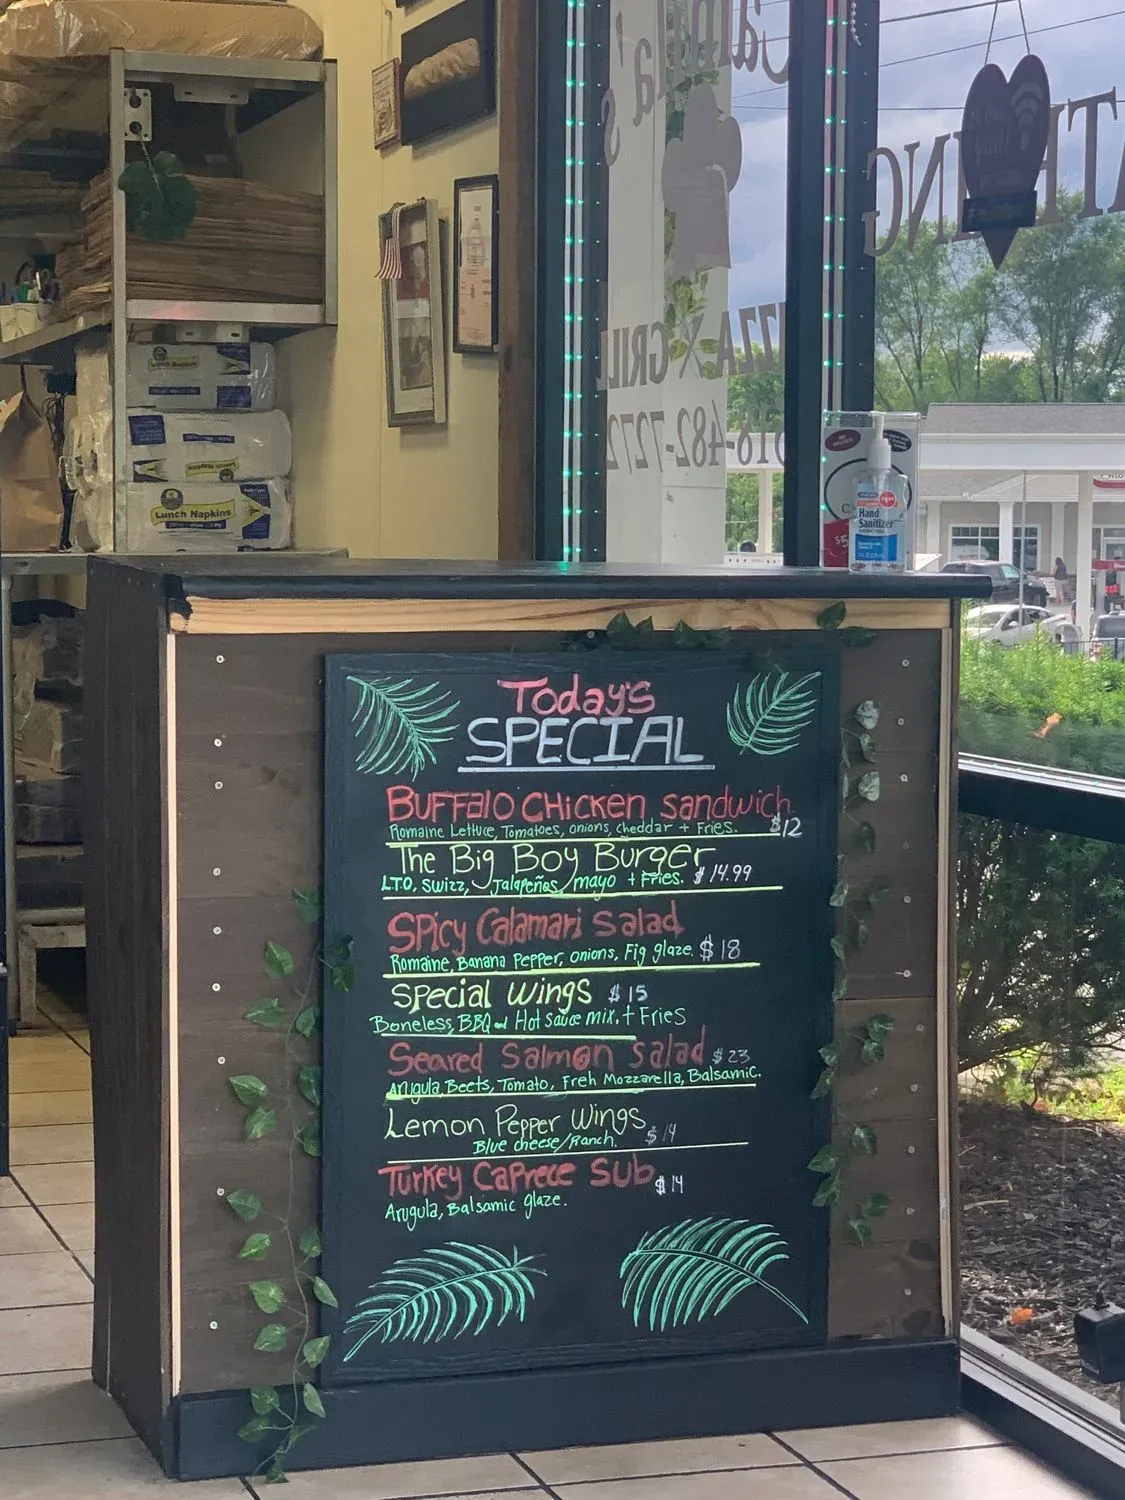 Camilla's
PIZZA X GRILL
518-482-7272
Lunch Napkins
Hand
Sanitizer
Today's
SPECIAL
BUFFAlO CHicKen Sandwich
Romaine Lettuce, Tomatoes, onions, cheddar + Fries. $12
The Big Boy Burger
L.T.O, Swizz, Jalapeños/mayo + Fries. $14.99
SPicy Calamari Salad
Romaine, Banana Pepper, onions, Fig glaze. $18
Special Wings $15
Boneless, BBQ and Hot Sauce mix. + Fries
Seared Salmon Salad $23
Arugula, Beets, Tomato, Freh Mozzarella, Balsamic.
Lemon Pepper Wings
Blue cheese/Ranch. $14
Turkey Caprece Sub $14
Arugula, Balsamic glaze.